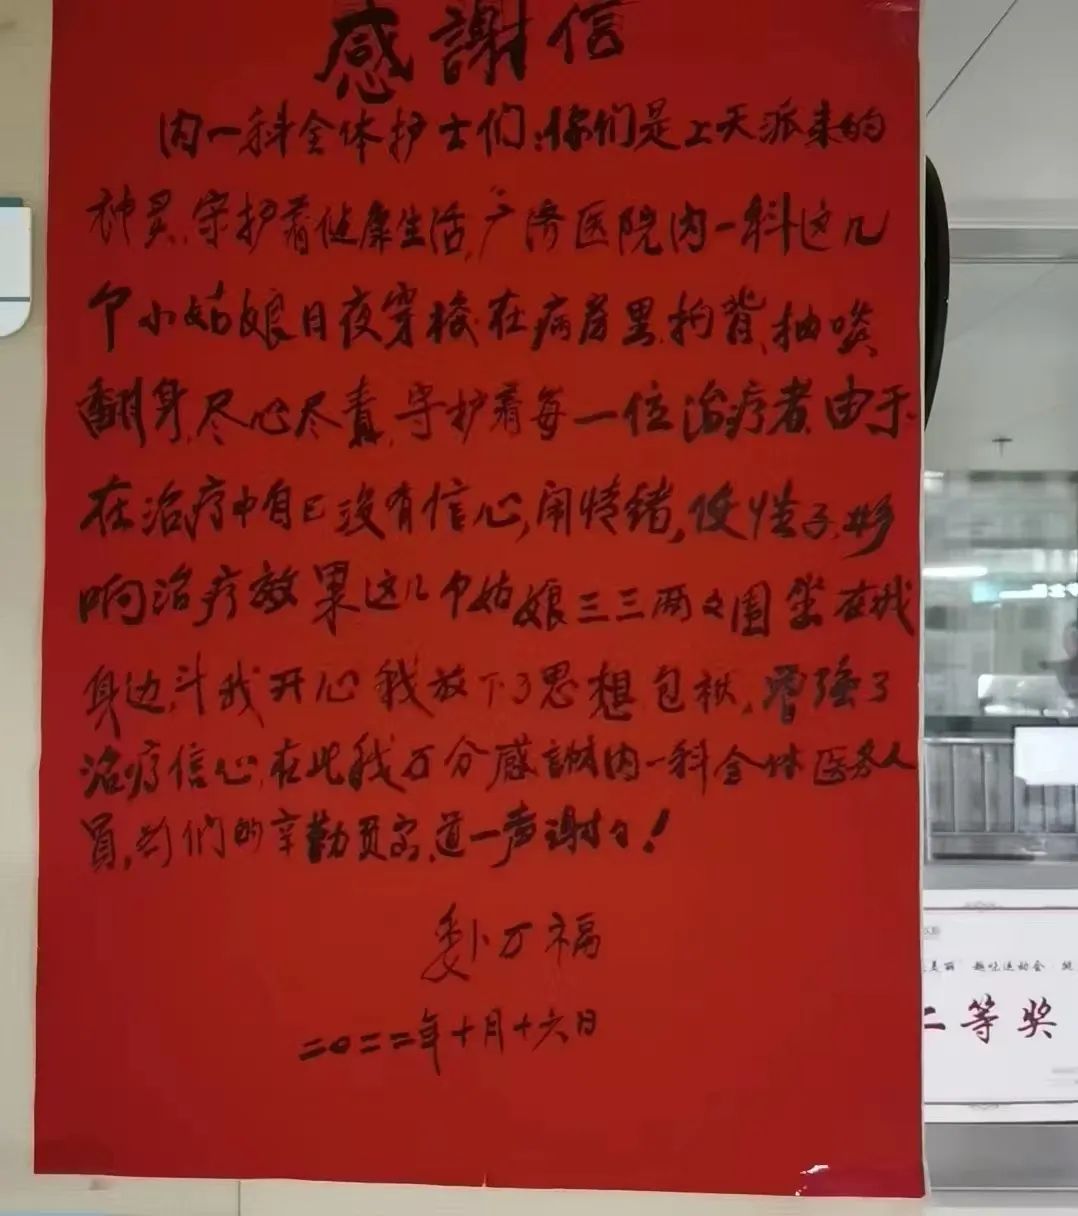 感謝信
内一科全体护士们:你们是上天派来的
神灵,守护着健康生活,广济医院内一科这几
个小姑娘日夜穿梭在病房里,拘背、抽痰
翻身,尽心尽责,守护着每一位治疗者,由于
在治疗中自己没有信心,闹情绪,使性子,影
响治疗效果这几个姑娘三三两々围坐在我
身边,斗我开心我放下了思想包袱,增强了
治疗信心,在此我万分感謝内一科全体医务人
員,你们的辛勤贡献,道一声谢々!
万福
二〇二二年十月十六日
美丽 趣味运动会
二等奖